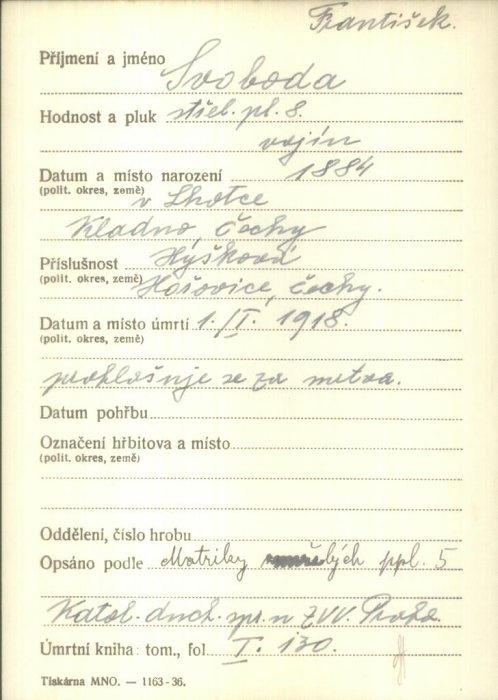 František.
Příjmení a jméno Svoboda
Hodnost a pluk střel. pl. 8.
vojín
Datum a místo narození 1884
(polit. okres, země) v Lhotce
Kladno, Čechy
Příslušnost Hýskova
(polit. okres, země) Hořovice, Čechy.
Datum a místo úmrtí 1./I. 1918.
(polit. okres, země)
prohlašuje se za mrtva.
Datum pohřbu
Označení hřbitova a místo
(polit. okres, země)
Oddělení, číslo hrobu
Opsáno podle Matriky ppl. 5
Katol. duch. spr. u ZVV. Praha.
Úmrtní kniha: tom., fol I. 130.
Tiskárna MNO. — 1163-36.